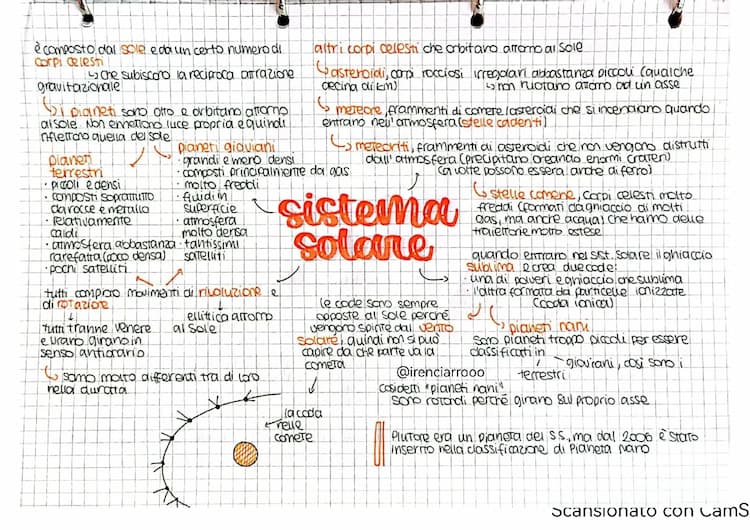 è composto dal sole e da un certo numero di
corpi celesti
che subiscono la reciproca attrazione
gravitazionale
i pianeti sono otto e orbitano attorno
al sole. Non emettono luce propria e quindi
riflettono quella del sole
pianeti
terrestri
· piccoli e densi
· composti soprattutto
da rocce e metallo
· relativamente
caldi
· atmosfera abbastanza
rarefatta (poco densa)
· pochi satelliti
pianeti gioviani
· grandi e meno densi
· composti principalmente da gas
· molto freddi
· fluidi in
superficie
· atmosfera
molto densa
· tantissimi
satelliti
tutti compiono movimenti di rivoluzione e
di rotazione
ellittica attorno
al sole
tutti tranne venere
e urano girano in
senso antiorario
sono molto differenti tra di loro
nella durata
sistema
solare
altri corpi celesti che orbitano attorno al sole
asteroidi, corpi rocciosi irregolari abbastanza piccoli (qualche
decina di km)
non ruotano attorno ad un asse
meteore, frammenti di comete/asteroidi che si incendiano quando
entrano nell'atmosfera (stelle cadenti)
meteoriti, frammenti di asteroidi che non vengono distrutti
dall'atmosfera (precipitano creando enormi crateri)
(a volte possono essere anche di ferro)
stelle comete, corpi celesti molto
freddi (formati da ghiaccio di molti
gas, ma anche acqua) che hanno delle
traiettorie molto estese
quando entrano nel sist. solare il ghiaccio
sublima e crea due code:
· una di polveri e ghiaccio che sublima
· l'altra formata da particelle ionizzate
(coda ionica)
le code sono sempre
opposte al sole perché
vengono spinte dal vento
solare, quindi non si può
capire da che parte va la
cometa
pianeti nani
sono pianeti troppo piccoli per essere
classificati in
gioviani, così sono i
terrestri
@irenciarrooo
cosidetti "pianeti nani"
sono rotondi perché girano sul proprio asse
la coda
nelle
comete
Plutone era un pianeta del S.S., ma dal 2006 è stato
inserito nella classificazione di Pianeta nano
Scansionato con CamS